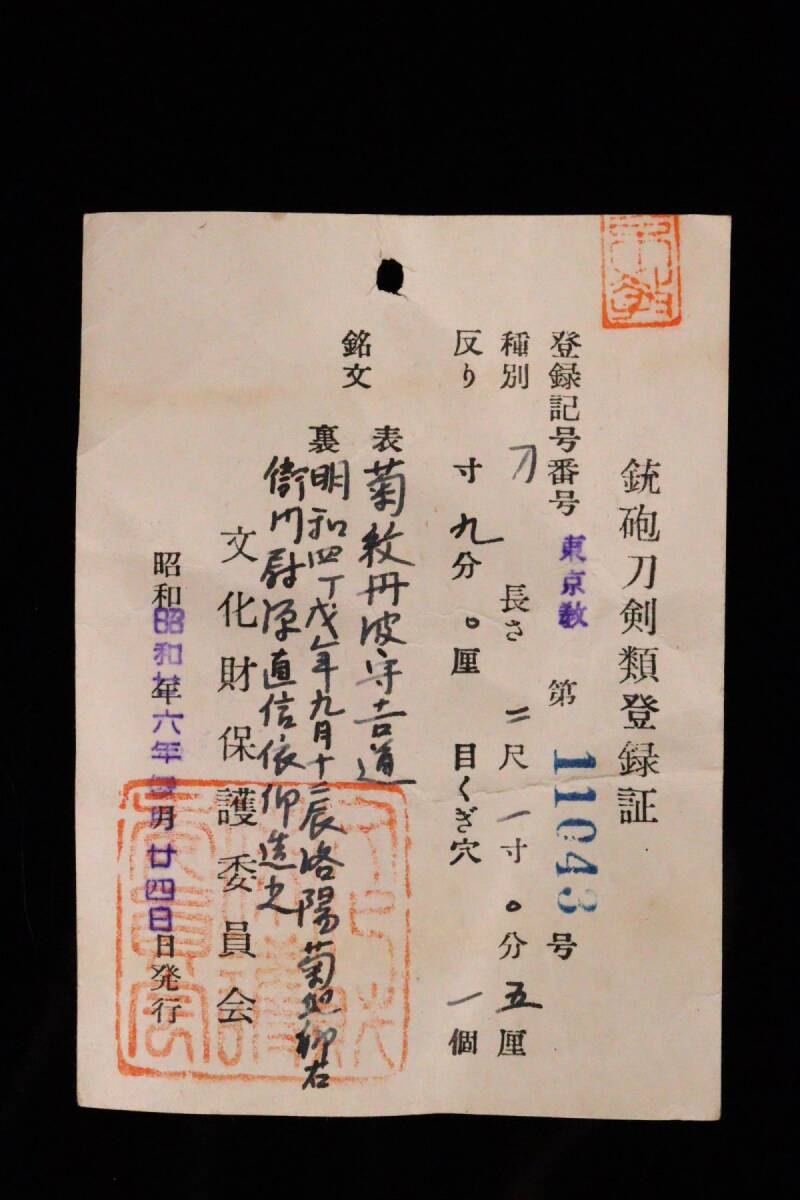 銃砲刀剣類登録証
登録記号番号 東京教 第 11043 号
種別 刀 長さ 二尺一寸〇分五厘
反り 寸九分〇厘 目くぎ穴 一個
銘文
表 菊紋丹波守吉道
裏 明和四丁戌年九月十二辰洛陽菊地御右
衛門尉源直信依仰造之
文化財保護委員会
昭和 年 月 日発行
昭和 六年 月廿四日